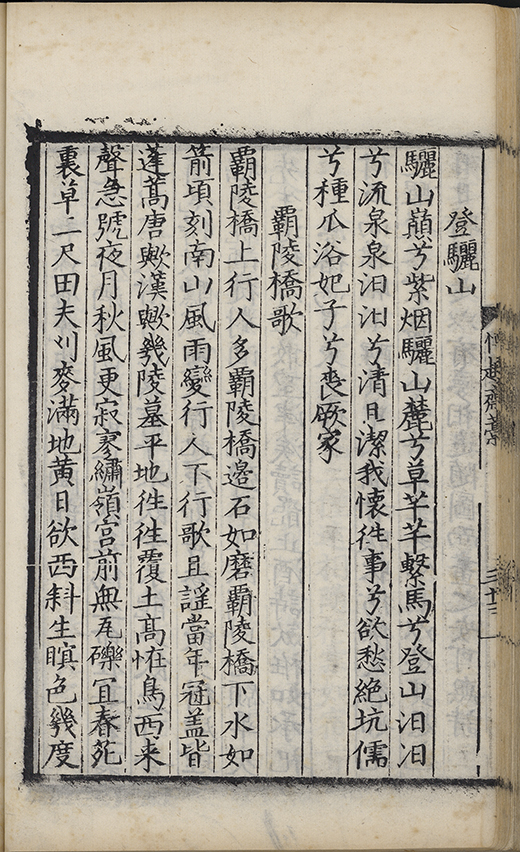 登驪山
驪山巔兮紫烟驪山麓兮草芊芊繫馬兮登山汨汨
兮流泉泉汨汨兮清且潔我懷徃事兮欲愁絶坑儒
兮種瓜浴妃子兮喪厥家
覇陵橋歌
覇陵橋上行人多覇陵橋邉石如磨覇陵橋下水如
箭頃刻南山風雨變行人下行歌且謡當年冠盖皆
蓬蒿唐歟漢歟幾陵墓平地徃徃覆土髙恠鳥西来
聲急號夜月秋風更寂寥繡嶺宫前無瓦礫冝春苑
裏草二尺田夫刈麥滿地黄日欲西斜生瞑色幾度